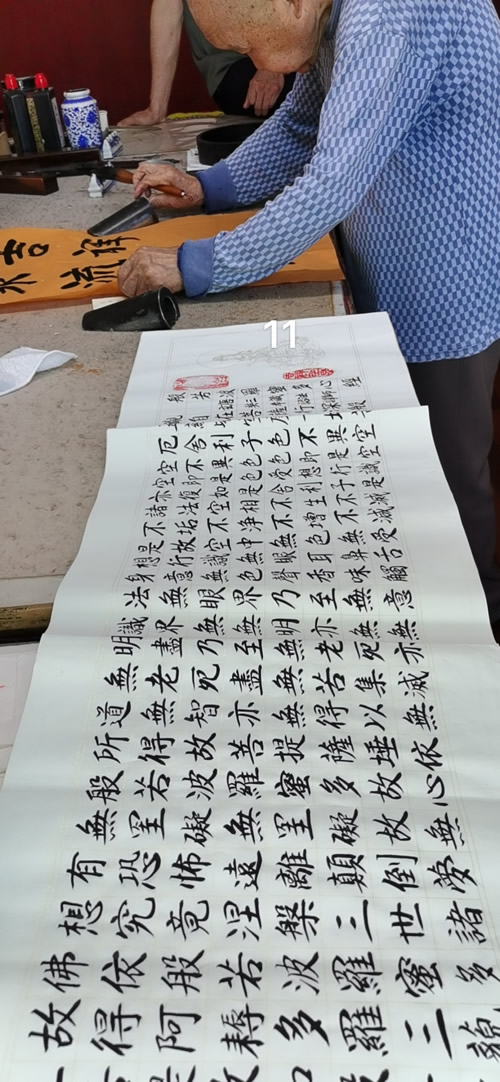 11
吉祥
流
厄舍利子色不異空
空不異色色即是空
空即是色受想行識
亦復如是舍利子是
諸法空相不生不滅
不垢不淨不增不減
是故空中無色無受
想行識無眼耳鼻舌
身意無色聲香味觸
法無眼界乃至無意
識界無無明亦無無
明盡乃至無老死亦
無老死盡無苦集滅
道無智亦無得以無
所得故菩提薩埵依
般若波羅蜜多故心
無罣礙無罣礙故無
有恐怖遠離顛倒夢
想究竟涅槃三世諸
佛依般若波羅蜜多
故得阿耨多羅三藐